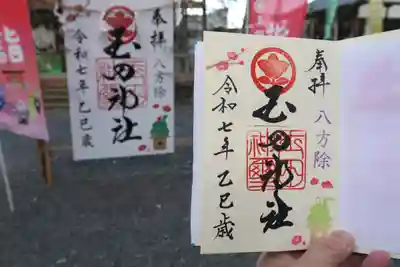 奉拝
八方除
玉田神社
令和七年乙巳歳
奉拝
八方除
玉田神社
令和七年乙巳歳